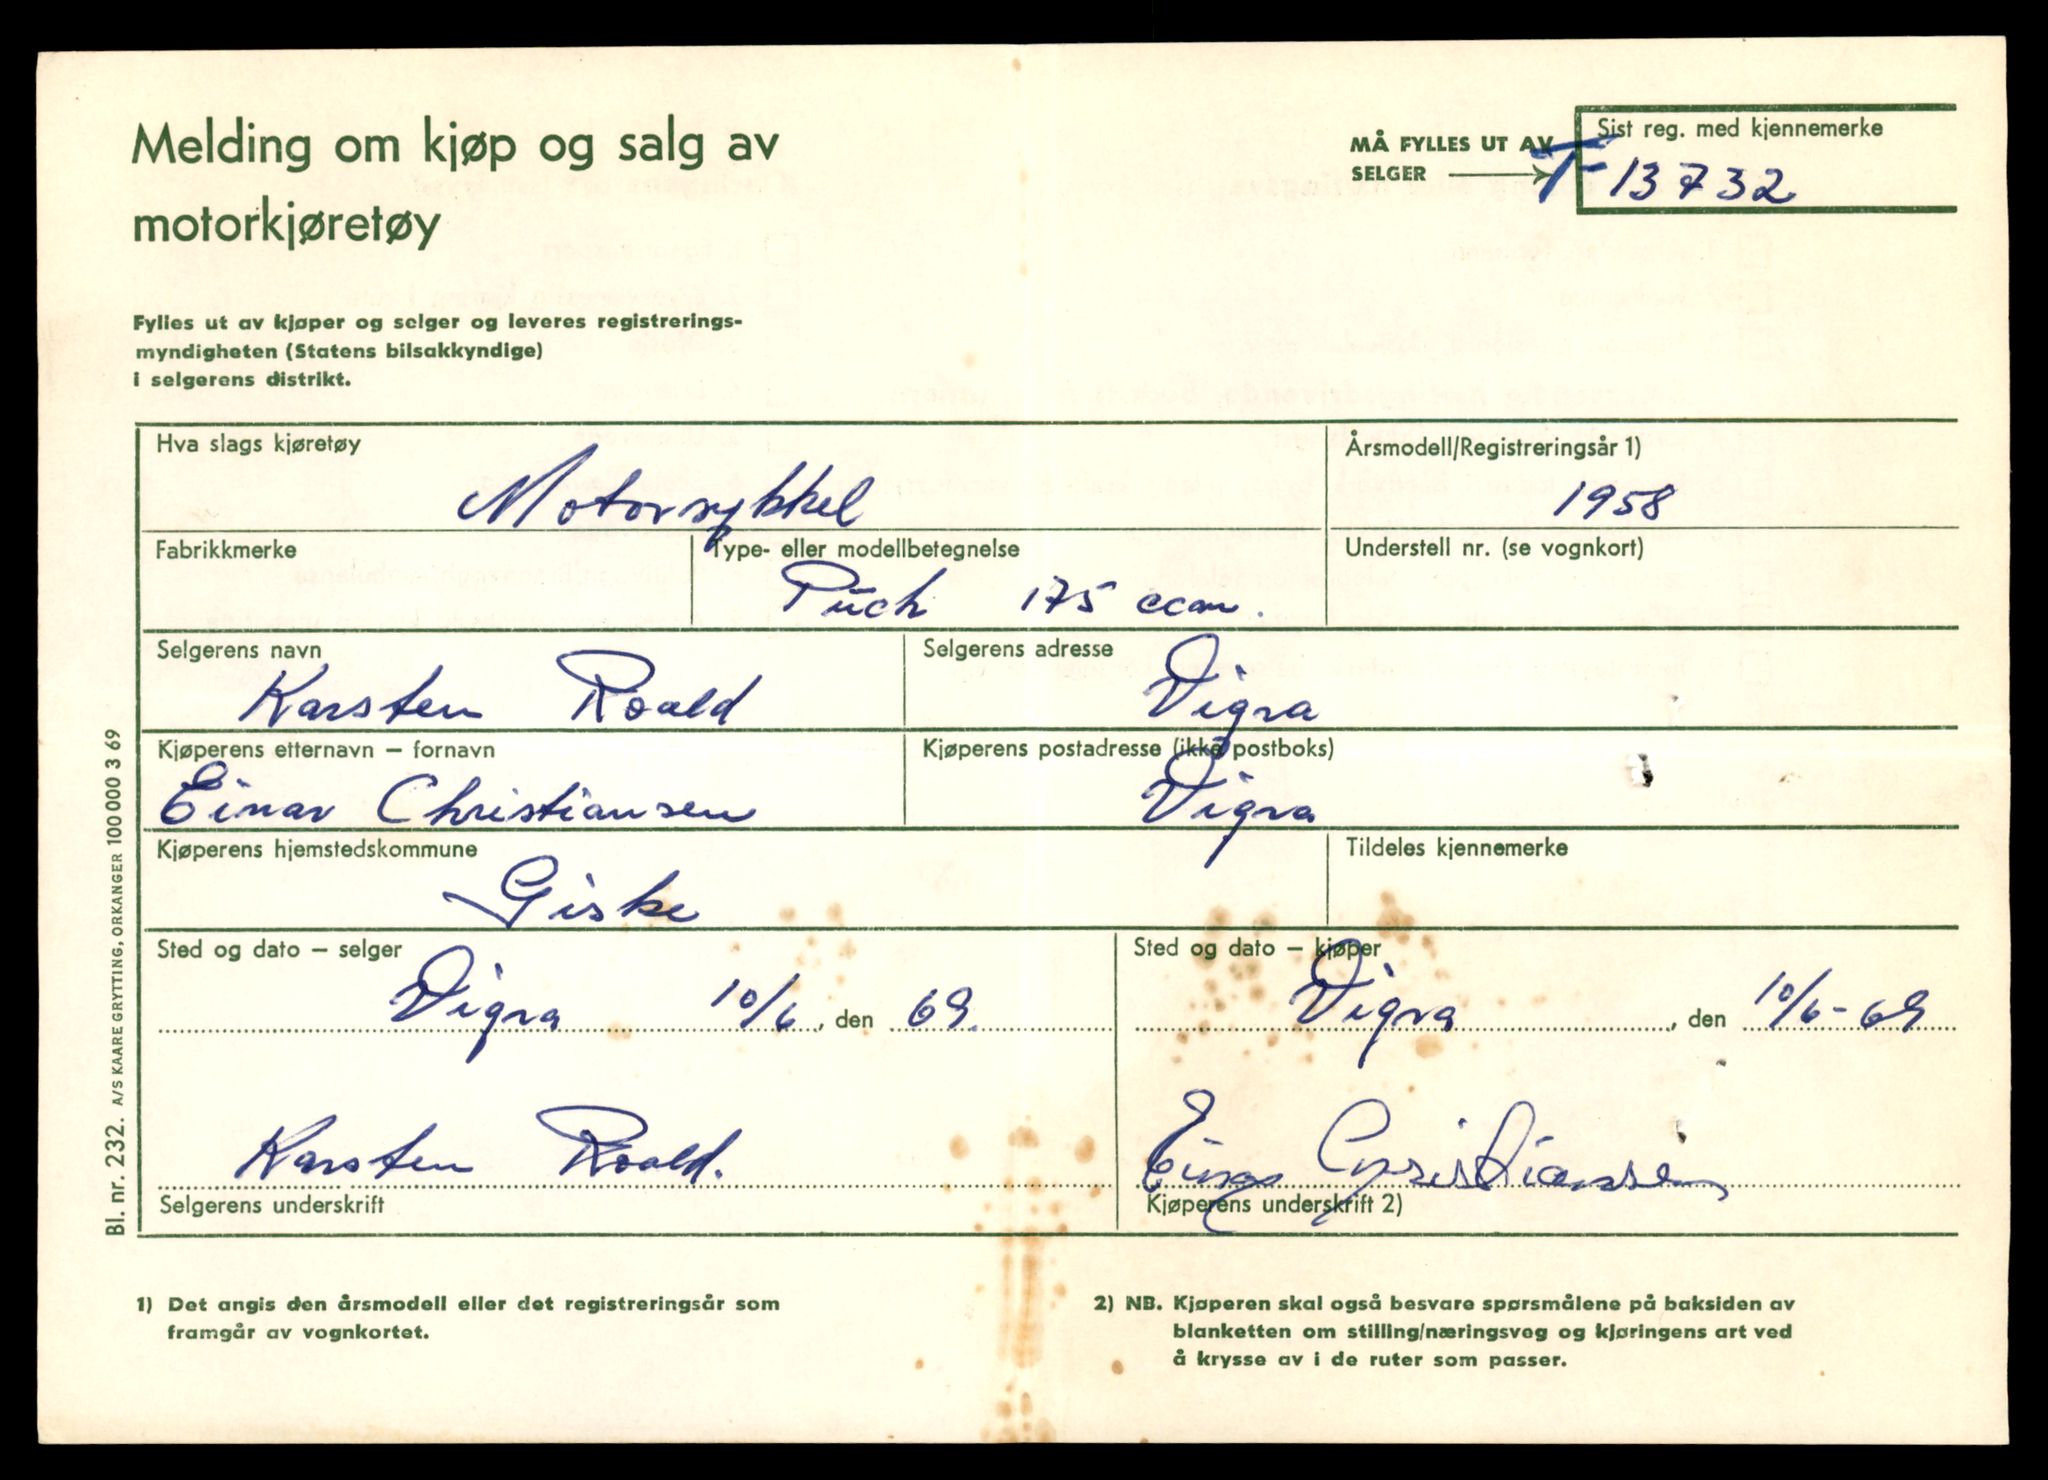 Melding om kjøp og salg av
motorkjøretøy
MÅ FYLLES UT AV
SELGER
Sist reg. med kjennemerke
T-13732
Fylles ut av kjøper og selger og leveres registrerings-
myndigheten (Statens bilsakkyndige)
i selgerens distrikt.
Hva slags kjøretøy
Motorsykkel
Årsmodell/Registreringsår 1)
1958
Fabrikkmerke
Type- eller modellbetegnelse
Puch 175 ccm.
Understell nr. (se vognkort)
Selgerens navn
Karsten Roald
Selgerens adresse
Vigra
Kjøperens etternavn – fornavn
Einar Christiansen
Kjøperens postadresse (ikke postboks)
Vigra
Kjøperens hjemstedskommune
Giske
Tildeles kjennemerke
Sted og dato – selger
Vigra 10/6, den 69.
Sted og dato – kjøper
Vigra, den 10/6-69
Karsten Roald.
Selgerens underskrift
Einar Christianssen
Kjøperens underskrift 2)
1) Det angis den årsmodell eller det registreringsår som
framgår av vognkortet.
2) NB. Kjøperen skal også besvare spørsmålene på baksiden av
blanketten om stilling/næringsveg og kjøringens art ved
å krysse av i de ruter som passer.
Bl. nr. 232. A/S KAARE GRYTTING, ORKANGER 100 000 3 69